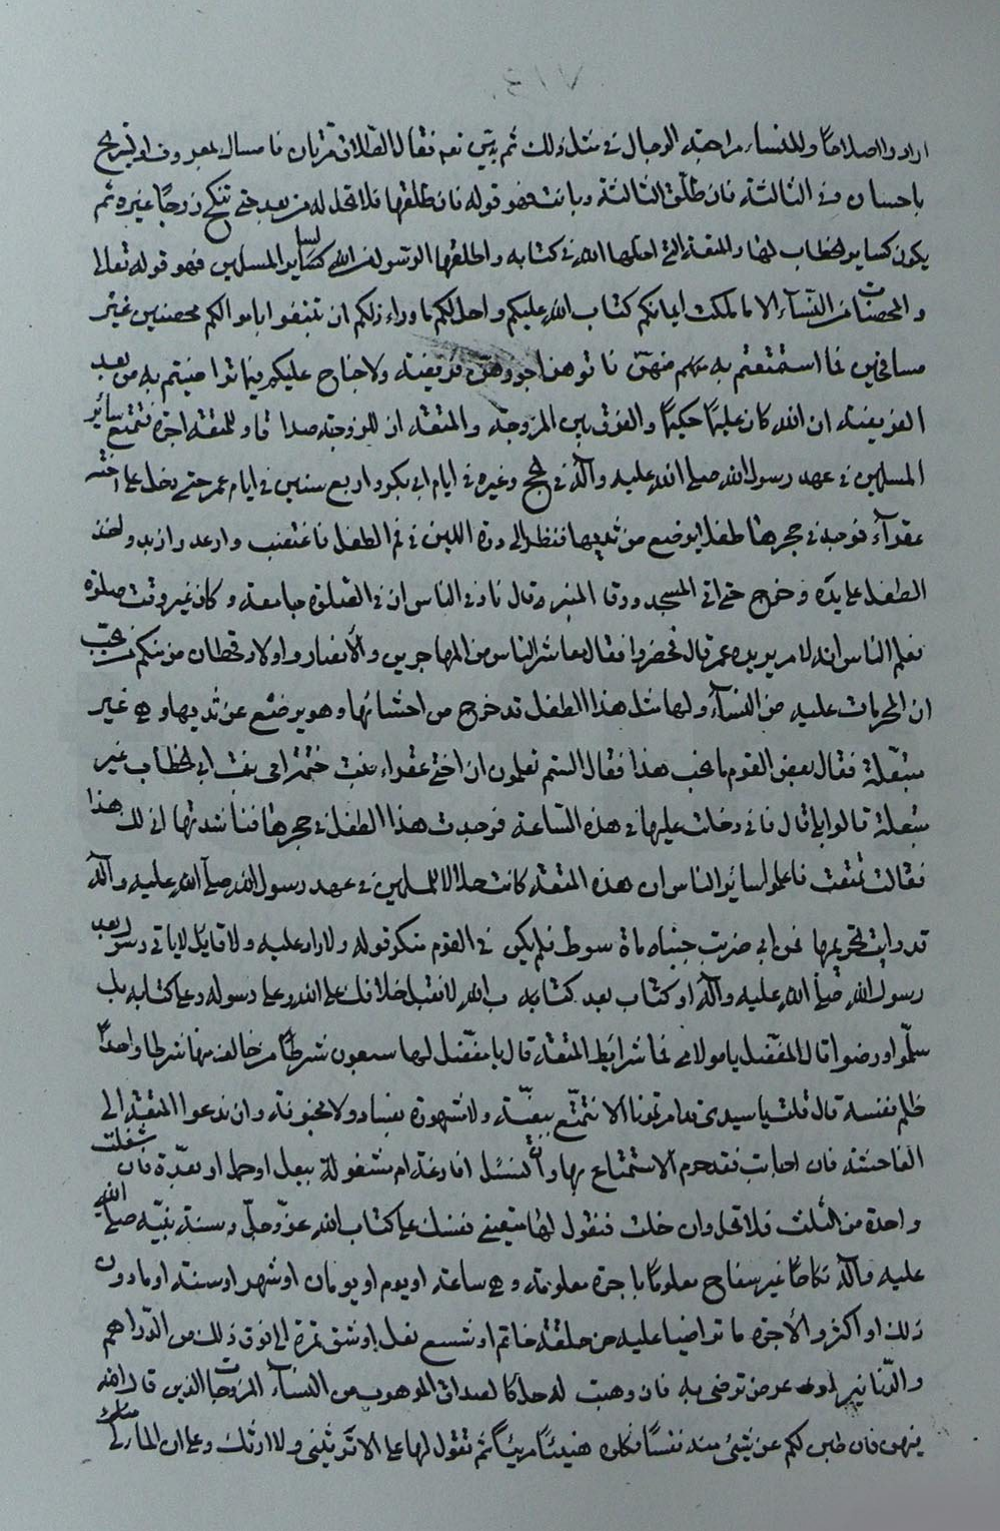 ارادوا اصلاحا وللنساء مراجعة الرجال في مثل ذلك ثم يبين نعم فقال الطلاق مرتان فامساك بمعروف او تسريح
باحسان وفي الثالثة فان طلق الثالثة وبانت فهو قوله فان طلقها فلا تحل له من بعد حتى تنكح زوجا غيره ثم
يكون كساير الخطاب لها والمتعة التي احلها الله في كتابه واطلقها الرسول عن الله لساير المسلمين فهو قوله تعالى
والمحصنات من النسآء الا ما ملكت ايمانكم كتاب الله عليكم واحل لكم ما وراء ذلكم ان تبتغوا باموالكم محصنين غير
مسافحين فما استمتعتم به منهن فاتوهن اجورهن فريضة ولا جناح عليكم فيما تراضيتم به من بعد
الفريضة ان الله كان عليما حكيما والفرق بين المزوجة والمتعة ان للزوجة صداقا وللمتعة اجرة فتمتع ساير
المسلمين في عهد رسول الله صلى الله عليه وآله في الحج وغيره في ايام ابي بكر واربع سنين في ايام عمر حتى دخل على اخته
عفراء فوجد في حجرها طفلا يرضع من ثديها فنظر الى درة اللبن في فم الطفل فاغتضب وارعد وازبد واخذ
الطفل على يده وخرج حتى اتى المسجد ورقا المنبر وقال نادوا في الناس ان الصلوة جامعة وكان غير وقت صلوة
فعلم الناس انه لامر يريده عمر قال فحضروا فقال معاشر الناس من المهاجرين والأنصار واولاد قحطان من منكم يحب
ان المحرمات عليه من النسآء ولها مثل هذا الطفل قد خرج من احشائها وهو يرضع عن ثديها وهي غير
متبعلة فقال بعض القوم ما نحب هذا فقال الستم تعلمون ان اختي عفراء بنت خثمة امي بنت ابي الخطاب غير
متبعلة قالوا بلى قال فاني دخلت عليها في هذه الساعة فوجدت هذا الطفل في حجرها فناشدتها انى لك هذا
فقالت تمتعت فاعلموا ساير الناس ان هذه المتعة كانت حلالا للمسلمين في عهد رسول الله صلى الله عليه وآله
قد رأيت تحريمها فمن ابى ضربت جنباه بالسوط فلم يكن في القوم منكر قوله ولا راد عليه ولا قايل لا ياتي رسول بعد
رسول الله صلى الله عليه وآله او كتاب بعد كتاب الله لا نقبل خلافك على الله وعلى رسوله وعلى كتابه بل
سلموا ورضوا قال المفضل يا مولاي فما شرايط المتعة قال يا مفضل لها سبعون شرطا من خالف منها شرطا واحدا
ظلم نفسه قال قلت يا سيدي قد امرتمونا الا نتمتع ببغية ولا مشهورة بفساد ولا مجنونة وان ندعوا المتعة الى
الفاحشة فان اجابت فقد حرم الاستمتاع بها وان نسئل افارغة ام مشغولة ببعل او حمل او بعدة فان شغلت
واحدة من الثلث فلا تحل وان خلت فنقول لها متعيني نفسك على كتاب الله عز وجل وسنة نبيه صلى الله
عليه وآله نكاحا غير سفاح معلوما باجرة معلومة وهي ساعة او يوم او يومان او شهر او سنة او ما دون
ذلك او اكثر والأجرة ما تراضيا عليه من حلقة خاتم او شسع نعل او شق تمرة الى فوق ذلك من الدراهم
والدنانير او عرض ترضى به فان وهبت له حل كالصداق الموهوب من النسآء المزوجات الذين قال الله
فيهن فان طبن لكم عن شئ منه نفسا فكلوه هنيئا مريئا ثم تقول لها على الا ترثيني ولا ارثك وعلى ان الماء لي